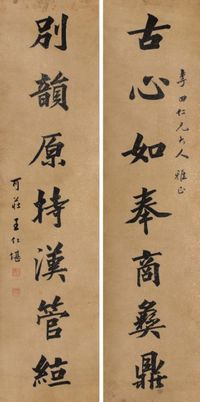 古心如奉商彝鼎
壽田仁兄大人雅正
別韻原持漢管絃
可莊王仁堪